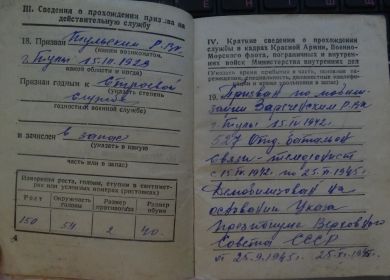 III. Сведения о прохождении призыва на
действительную службу
18. Призван Тульским РВК
(каким военкоматом,
г. Тулы 15.III.1923
какой области и когда)
Призван годным к
(указать степень
службе
годности к военной службе)
и зачислен в запас
(указать в какую
часть или в запас)
Измерения роста, головы, ступни в сантимет-
рах или условных номерах (ростовках)
Рост
Окружность головы
Размер противогаза
Размер обуви
150
54
2
40
4
IV. Краткие сведения о прохождении
службы в кадрах Красной Армии, Военно-
Морского Флота, пограничных и внутрен-
них войск Министерства внутренних дел
(Указать время прибытия в часть,
19. Призван по моби-
зации РВК
г. Тулы 15.IV.1942.
527 Отд. батальон
связи - телефонист
с 15.IV.1942 по 25.XI.1945г.
Демобилизован на
основании Указа
Президиума Верховного
Совета СССР
от 25.9.1945г. 25.XI.45г.